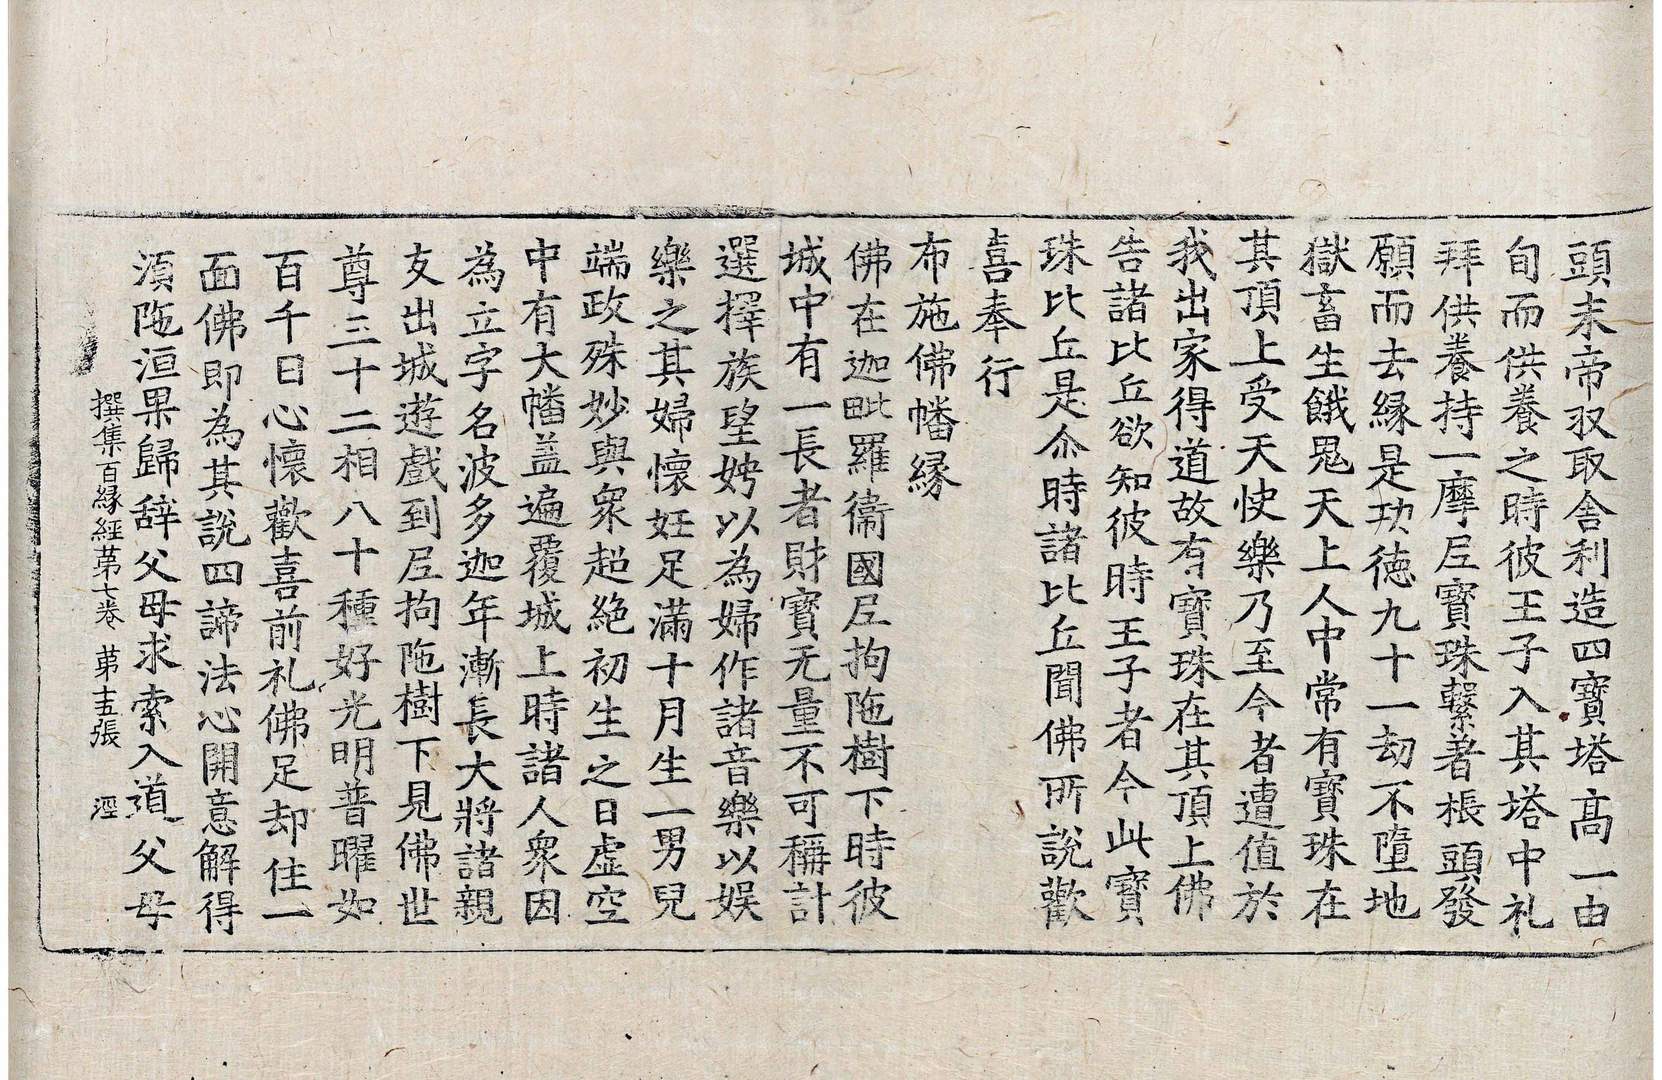 頭末帝収取舎利造四寶塔高一由
旬而供養之時彼王子入其塔中礼
拜供養持一摩尼寶珠繫著棖頭發
願而去緣是功德九十一劫不墮地
獄畜生餓鬼天上人中常有寶珠在
其頂上受天快樂乃至今者遭值於
我出家得道故有寶珠在其頂上佛
告諸比丘欲知彼時王子者今此寶
珠比丘是尒時諸比丘聞佛所說歡
喜奉行
布施佛幡緣
佛在迦毗羅衞國尼拘陁樹下時彼
城中有一長者財寶无量不可稱計
選擇族望娉以為婦作諸音樂以娛
樂之其婦懷妊足滿十月生一男兒
端政殊妙與衆超絕初生之日虛空
中有大幡盖遍覆城上時諸人衆因
為立字名波多迦年漸長大將諸親
友出城遊戲到尼拘陁樹下見佛世
尊三十二相八十種好光明普曜如
百千日心懷歡喜前礼佛足却住一
面佛即為其說四諦法心開意解得
湏陁洹果歸辭父母求索入道父母
撰集百緣經苐七卷 苐十五張 涇